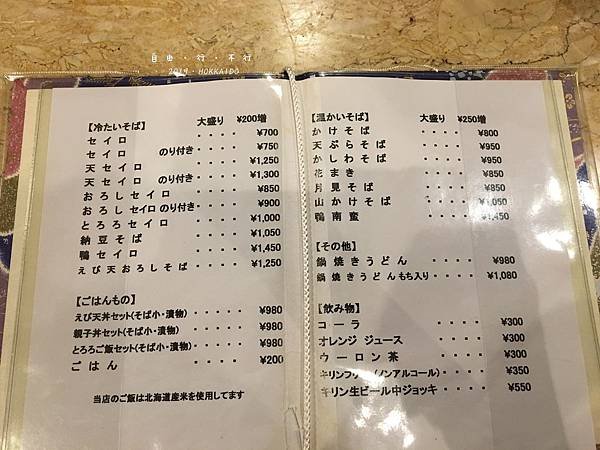 自由・行・不行
2019・HOKKAIDO
【冷たいそば】 大盛り ¥200増
セイロ ・・・・ ¥700
セイロ のり付き・・・・ ¥750
天セイロ ・・・・ ¥1,250
天セイロ のり付き・・・・ ¥1,300
おろしセイロ ・・・・ ¥850
おろしセイロ のり付き ・・・・ ¥900
とろろセイロ ・・・・ ¥1,000
納豆そば ・・・・ ¥1,050
鴨セイロ ・・・・ ¥1,450
えび天おろしそば ・・・・ ¥1,250
【ごはんもの】
えび天丼セット(そば小・漬物) ・・・・・ ¥980
親子丼セット(そば小・漬物) ・・・・・ ¥980
とろろご飯セット(そば小・漬物)・・・・・ ¥980
ごはん ・・・・ ¥200
当店のご飯は北海道産米を使用してます
【温かいそば】 大盛り ¥250増
かけそば ・・・・ ¥800
天ぷらそば ・・・・ ¥950
かしわそば ・・・・ ¥950
花まき ・・・・ ¥850
月見そば ・・・・ ¥850
山かけそば ・・・・ ¥1,050
鴨南蛮 ・・・・ ¥1,450
【その他】
鍋焼きうどん ・・・・ ¥980
鍋焼きうどん もち入り ・・・・ ¥1,080
【飲み物】
コーラ ・・・・ ¥300
オレンジ ジュース ・・・・ ¥300
ウーロン茶 ・・・・ ¥300
キリンフリー(ノンアルコール)・・・・ ¥350
キリン生ビール中ジョッキ ・・・・ ¥550